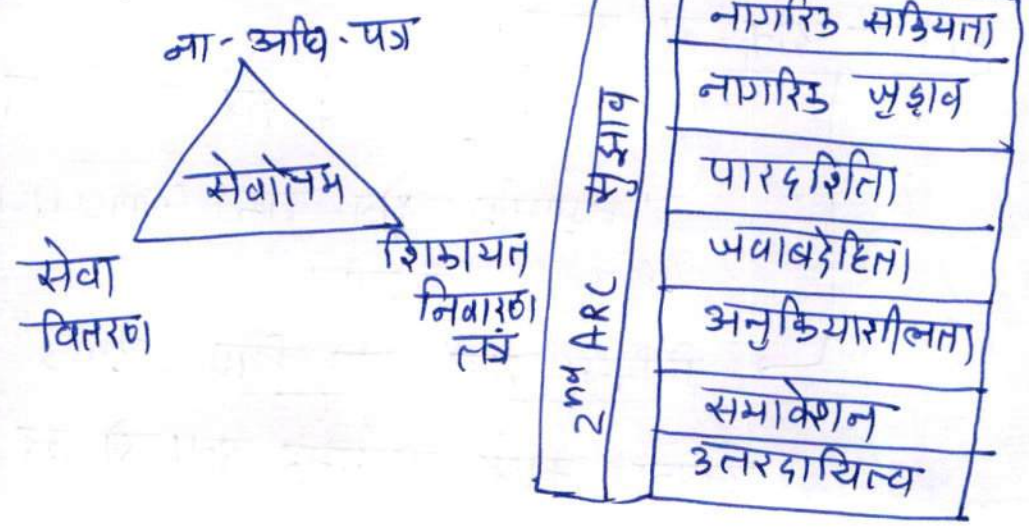 ना - अधि - पत्र
सेवोत्तम
सेवा
वितरण
शिकायत
निवारण
तंत्र
2nd ARC सुझाव
नागरिक सक्रियता
नागरिक जुड़ाव
पारदर्शिता
जवाबदेहिता
अनुक्रियाशीलता
समावेशन
उत्तरदायित्व